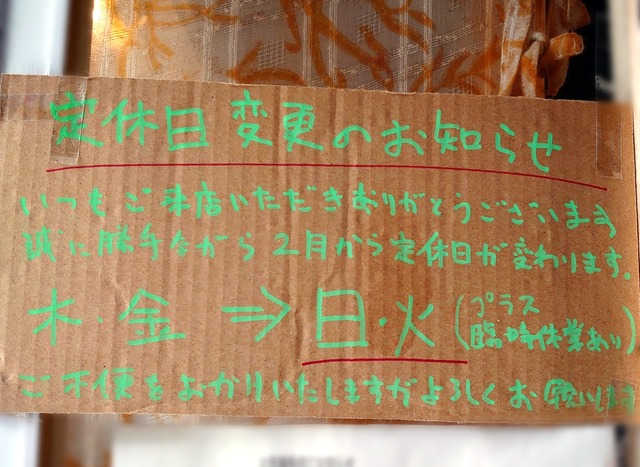 定休日変更のお知らせ
いつもご来店いただきありがとうございます
誠に勝手ながら2月から定休日が変わります。
木・金 ⇒ 日・火 (プラス
臨時休業あり)
ご不便をおかけいたしますがよろしくお願いします